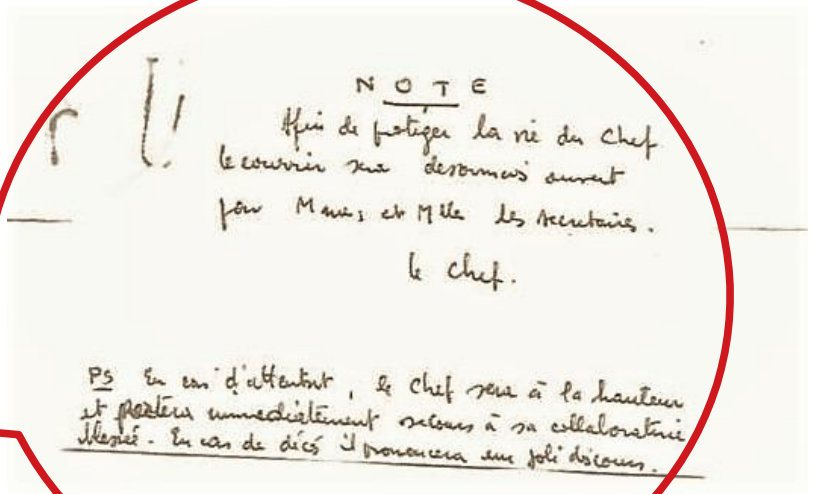 NOTE
Afin de protéger la vie du Chef
le courrier sera desormais ouvert
par Mmes et Mlle les secretaires.
le Chef.
PS En cas d'attentat, le Chef sera à la hauteur
et portera immediatement secours à sa collaboratrice
blessée. En cas de décés il prononcera un joli discours.